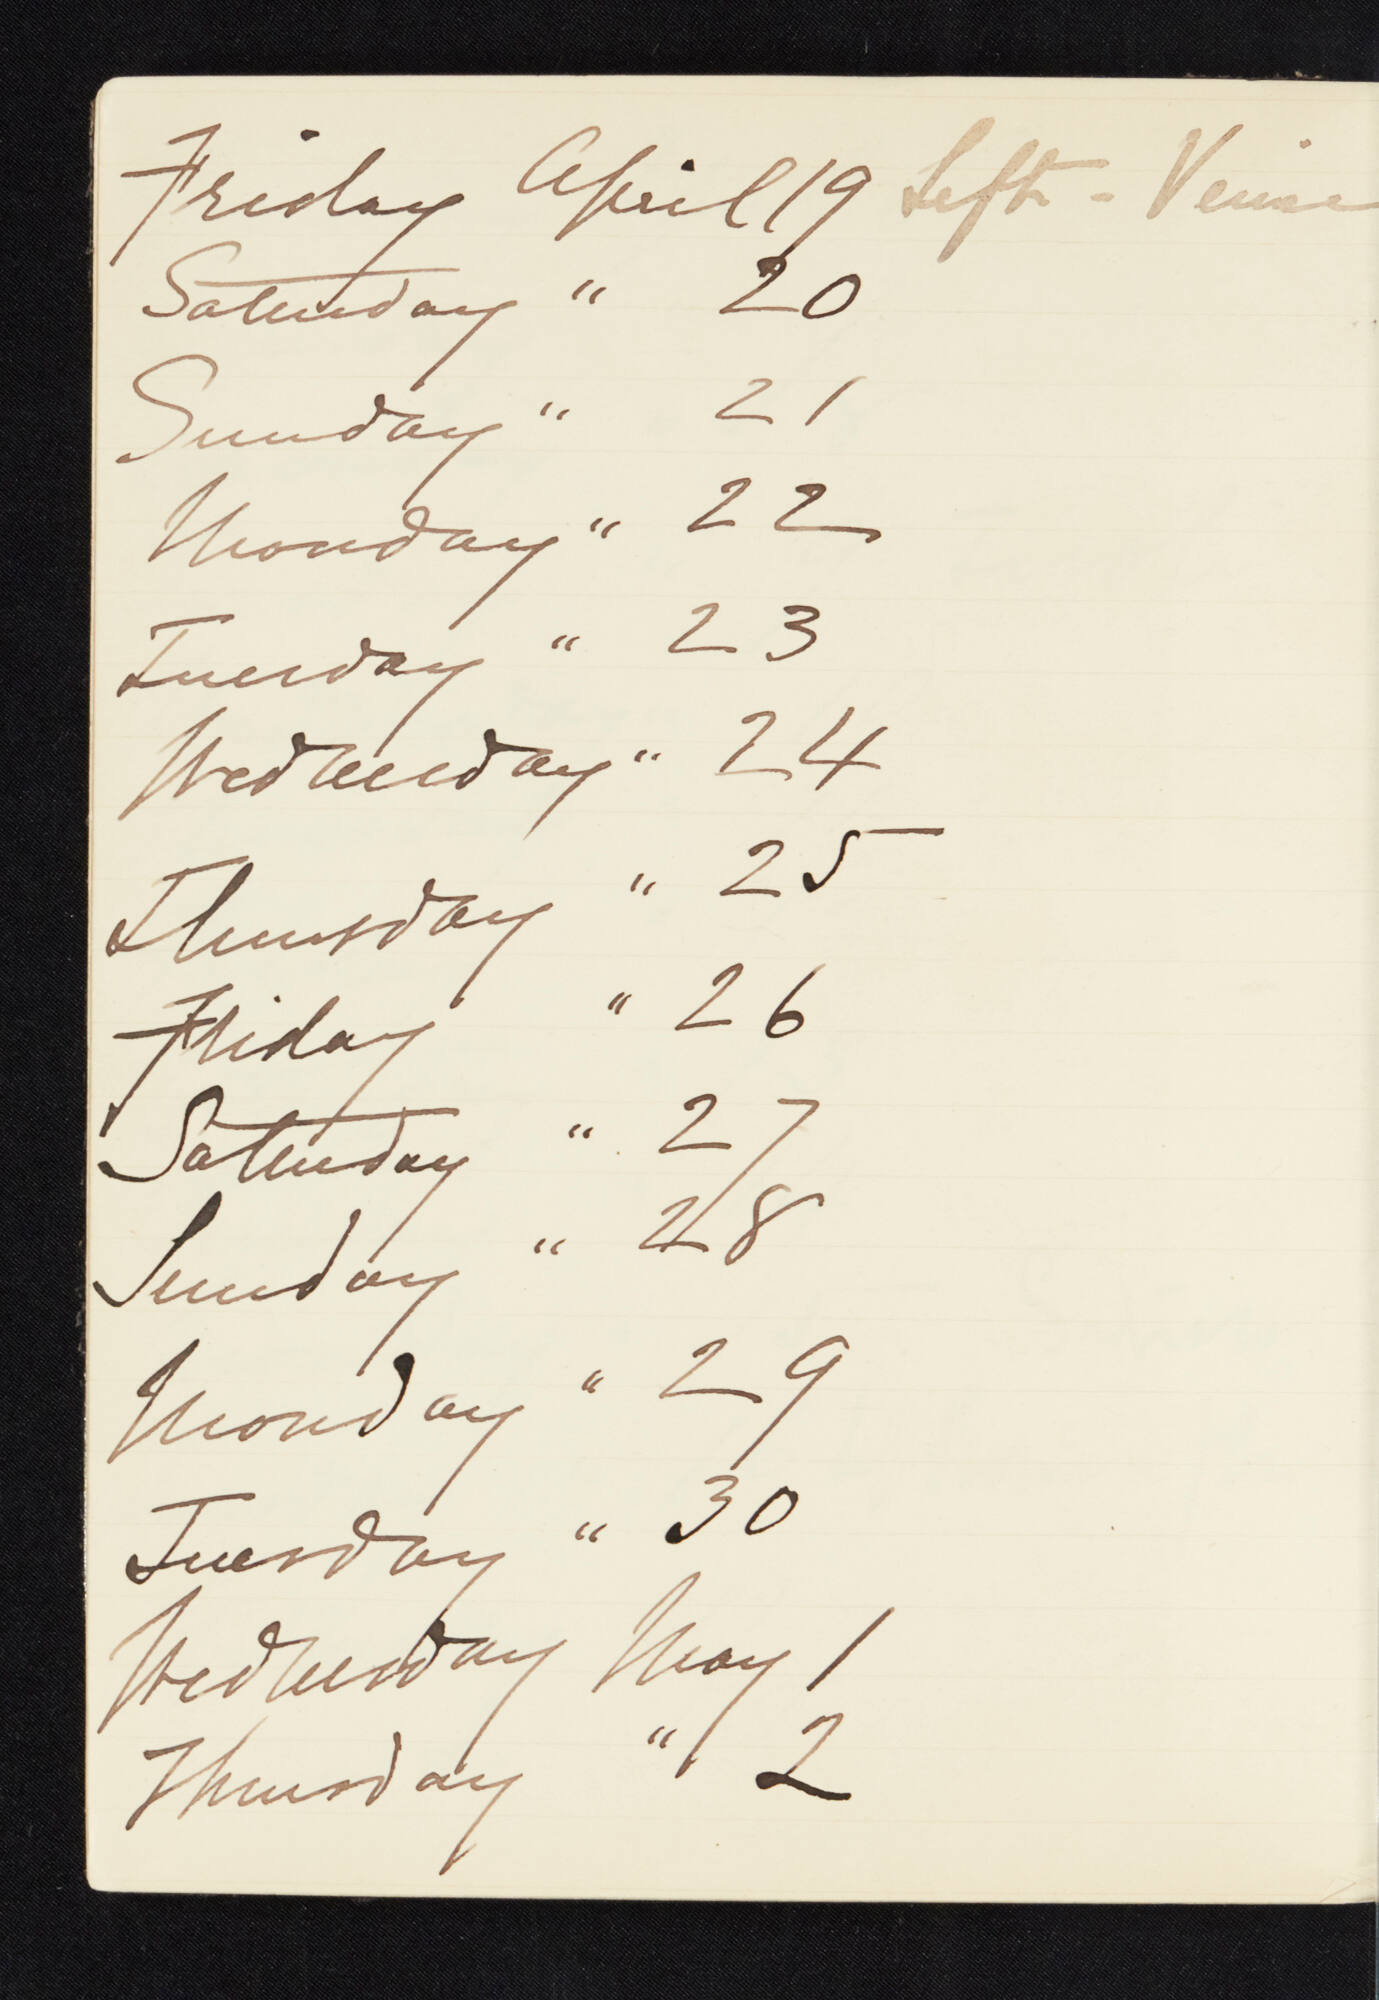 Friday April 19 Left - Venice
Saturday " 20
Sunday " 21
Monday " 22
Tuesday " 23
Wednesday " 24
Thursday " 25
Friday " 26
Saturday " 27
Sunday " 28
Monday " 29
Tuesday " 30
Wednesday May 1
Thursday " 2